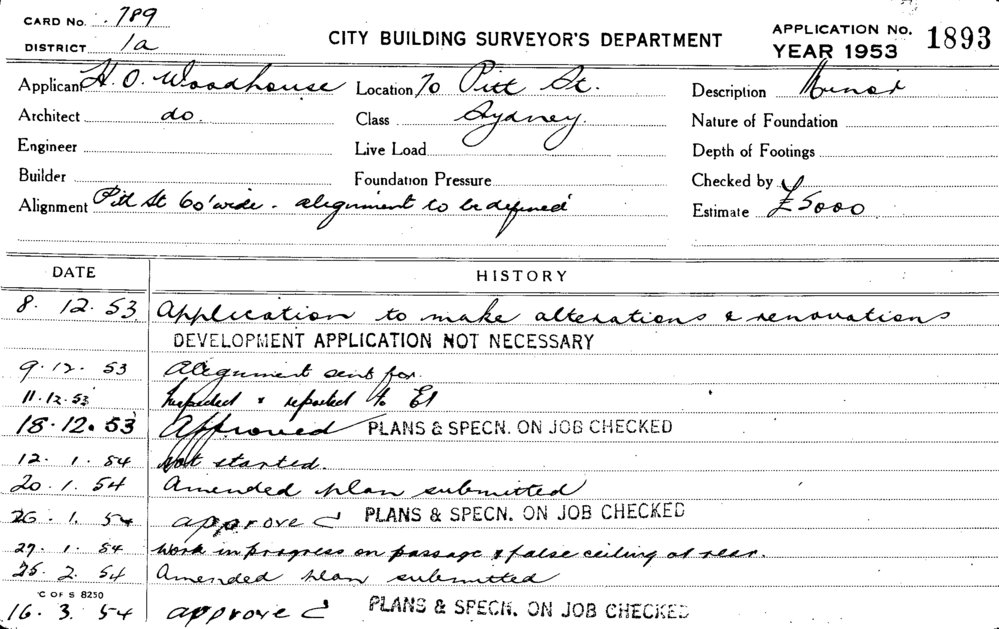 CARD No. 789
DISTRICT 1a
CITY BUILDING SURVEYOR'S DEPARTMENT
APPLICATION No. 1893
YEAR 1953
Applicant H. O. Woodhouse Location 70 Pitt St. Description Minor
Architect do. Class Sydney. Nature of Foundation
Engineer Live Load Depth of Footings
Builder Foundation Pressure Checked by
Alignment Pitt St 60' wide - alignment to be defined Estimate £5000
DATE HISTORY
8. 12. 53 Application to make alterations & renovations
DEVELOPMENT APPLICATION NOT NECESSARY
9. 12. 53 Alignment sent for.
11.12.53 Inspected & reported to
18.12.53 Approved PLANS & SPECN. ON JOB CHECKED
12. 1. 54 Not started.
20. 1. 54 Amended plan submitted
26. 1. 54 approved PLANS & SPECN. ON JOB CHECKED
29. 1. 54 Work in progress on passage & false ceiling at rear.
25. 2. 54 Amended plan submitted
C OF S 8250
16. 3. 54 approved PLANS & SPECN. ON JOB CHECKED